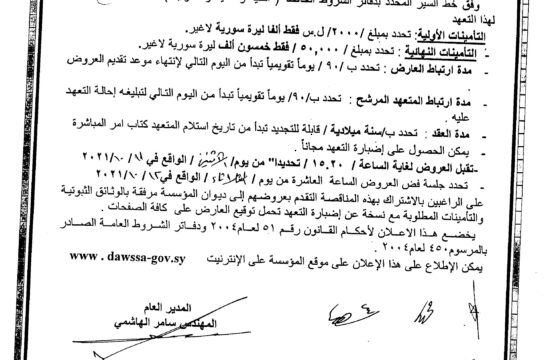 وفق خط السير المحدد بدفاتر الشروط
لهذا التعهد
التأمينات الأولية: تحدد بمبلغ /٢٠٠٠/ ل.س فقط ألفا ليرة سورية لاغير.
- التأمينات النهائية : تحدد بمبلغ / ٥٠,٠٠٠ / فقط خمسون ألف ليرة سورية لاغير.
- مدة ارتباط العارض : تحدد ب /٩٠/ يوماً تقويمياً تبدأ من اليوم التالي لإنتهاء موعد تقديم العروض
- مدة ارتباط المتعهد المرشح : تحدد ب/٩٠/ يوماً تقويمياً تبدأ من اليوم التالي لتبليغه إحالة التعهد
عليه .
- مدة العقد : تحدد ب/سنة ميلادية / قابلة للتجديد تبدأ من تاريخ استلام المتعهد كتاب امر المباشرة
- يمكن الحصول على إضبارة التعهد مجاناً .
-تقبل العروض لغاية الساعة / ١٥.٢٠ / تحديدا" من يوم/ الاثنين / الواقع في /١١ /٢٠٢١/١٠
- تحدد جلسة فض العروض الساعة العاشرة من يوم / الثلاثاء / الواقع في /١٢ /٢٠٢١/١٠
على الراغبين بالاشتراك بهذه المناقصة التقدم بعروضهم إلى ديوان المؤسسة مرفقة بالوثائق الثبوتية
والتأمينات المطلوبة مع نسخة عن إضبارة التعهد تحمل توقيع العارض على كافة الصفحات .
يخضع هذا الاعلان لأحكام القانون رقم ٥١ لعام٢٠٠٤ ودفاتر الشروط العامة الصادر
بالمرسوم ٤٥٠ لعام ٢٠٠٤ .
يمكن الإطلاع على هذا الإعلان على موقع المؤسسة على الإنترنيت www . dawssa-gov.sy
المدير العام
المهندس سامر الهاشمي